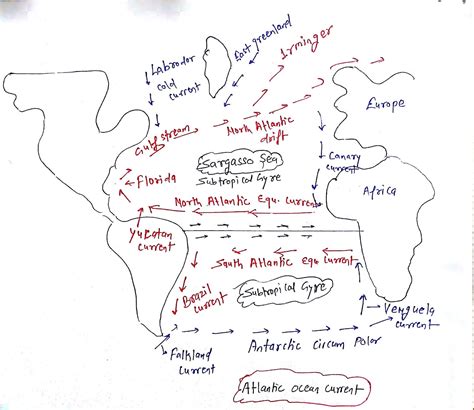 Labrador
cold
current
East greenland
Irminger
Europe
Gulf stream
North Atlantic
drift
Sargasso Sea
Subtropical Gyre
Canary
current
Florida
Africa
North Atlantic Equ. current
Yukatan
current
South Atlantic equ current
Brazil
current
Subtropical Gyre
Venguela
current
Falkland
current
Antarctic circum Polar
Atlantic ocean current